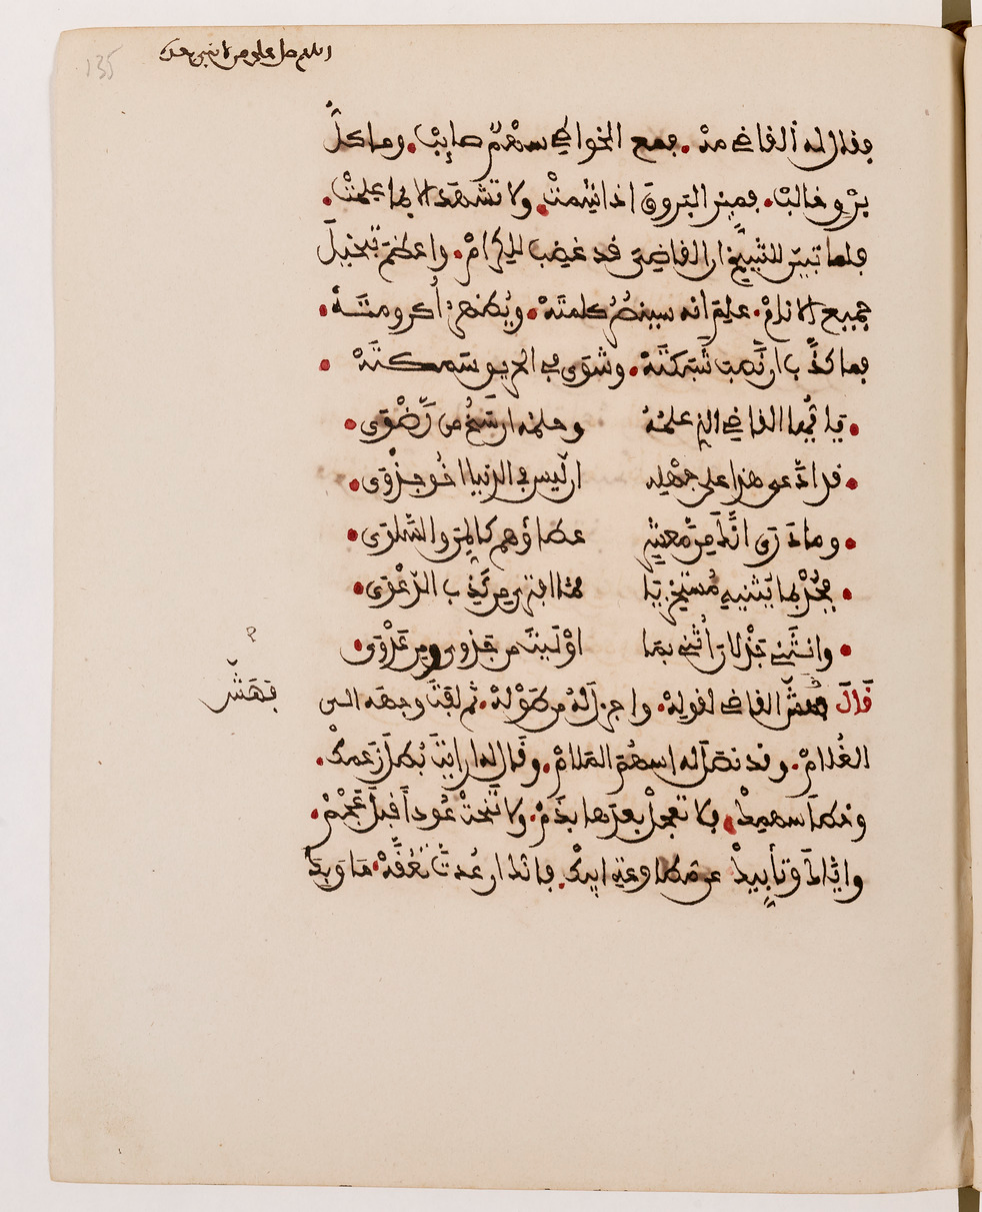 اللهم صل على من لا نبي بعده
135
فقال له القاضي مه. فمع الخواطي سهم صايب. وما كل
برق خالب. فميز البروق اذا شمت. ولا تشهد الا بما علمت.
فلما تبين للشيخ ان القاضي قد غضب للكرام. واعظم تبخيل
جميع الانام. علم انه سينصر كلمته. ويظهر أكرومته.
فما كذب ان نصب شبكته. وشوى في الحريق سمكته
يا ايها القاضي الذي علمه وحلمه ارسخ من رضوى
قد ادعى هذا على جهله ان ليس في الدنيا اخو جدوى
وما درى انك من معشر عطاؤهم كالمن والسلوى
فجد بما يثنيه مستخزيا مما افترى من كذب الدعوى
وانثني جذلان أثني بما اوليت من جدوى ومن عدوى
قال فهش القاضي لقوله. واجزل له من طوله. ثم لفت وجهه الى
فهش
الغلام. وقد نصل له اسهم الملام. وقال له ارايت بطل زعمك.
وخطأ سهمك. فلا تعجل بعدها بذم. ولا تنحت عودا قبل عجم.
واياك وتأبيك عن مطاوعة ابيك. فانك ان عدت تعقه. حاق بك